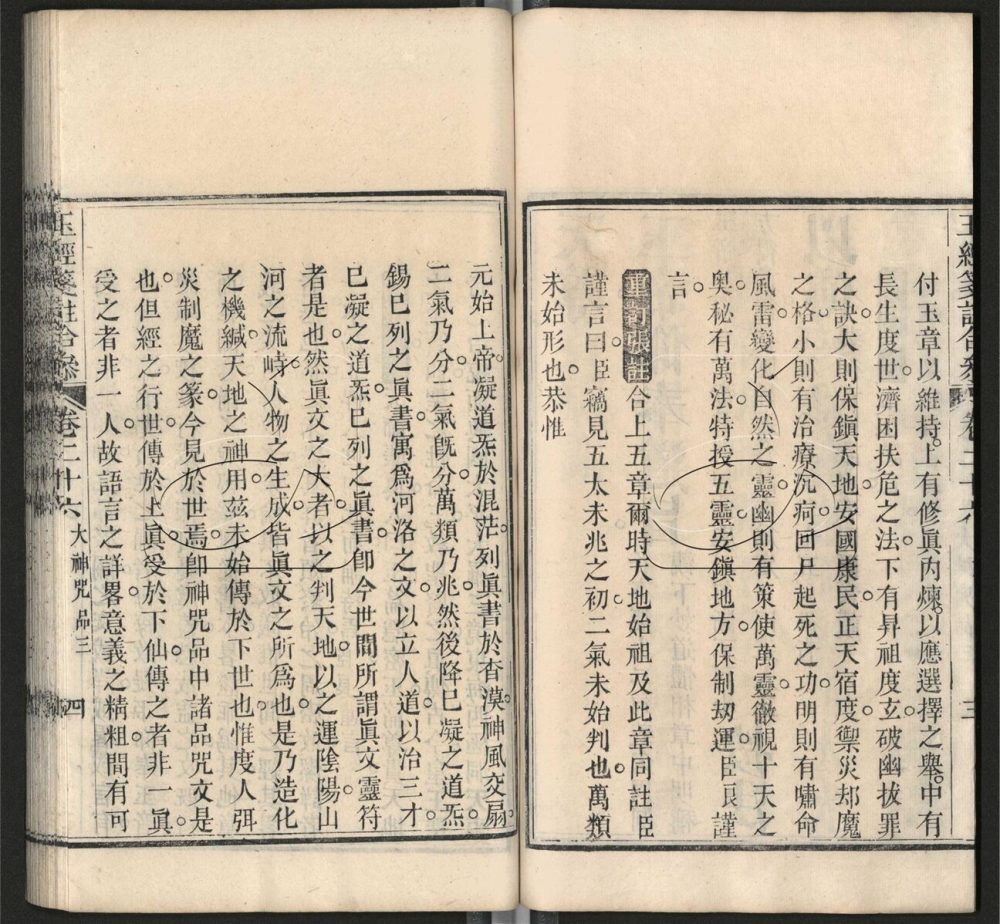 玉經箋註合參 卷二十六 三
付玉章以維持上有修眞內煉以應選擇之舉中有
長生度世濟困扶危之法下有昇祖度玄破幽拔罪
之訣大則保鎭天地安國康民正天宿度禦災却魔
之格小則有治療沉疴回尸起死之功明則有嘯命
風雷變化自然之靈幽則有策使萬靈徹視十天之
奧秘有萬法特授五靈安鎭地方保制刼運臣良謹
言
重刊張註合上五章爾時天地始祖及此章同註臣
謹言曰臣竊見五太未兆之初二氣未始判也萬類
未始形也恭惟
元始上帝凝道炁於混茫列眞書於杳漠神風交扇
二氣乃分二氣旣分萬類乃兆然後降巳凝之道炁
錫巳列之眞書寓爲河洛之文以立人道以治三才
巳凝之道炁巳列之眞書卽今世間所謂眞文靈符
者是也然眞文之大者以之判天地以之運陰陽山
河之流峙人物之生成皆眞文之所爲也是乃造化
之機緘天地之神用玆未始傳於下世也惟度人弭
災制魔之篆今見於世焉卽神咒品中諸品咒文是
也但經之行世傳於上眞受於下仙傳之者非一眞
受之者非一人故語言之詳畧意義之精粗間有可
玉經箋註合參 卷二十六 大神咒品三 四